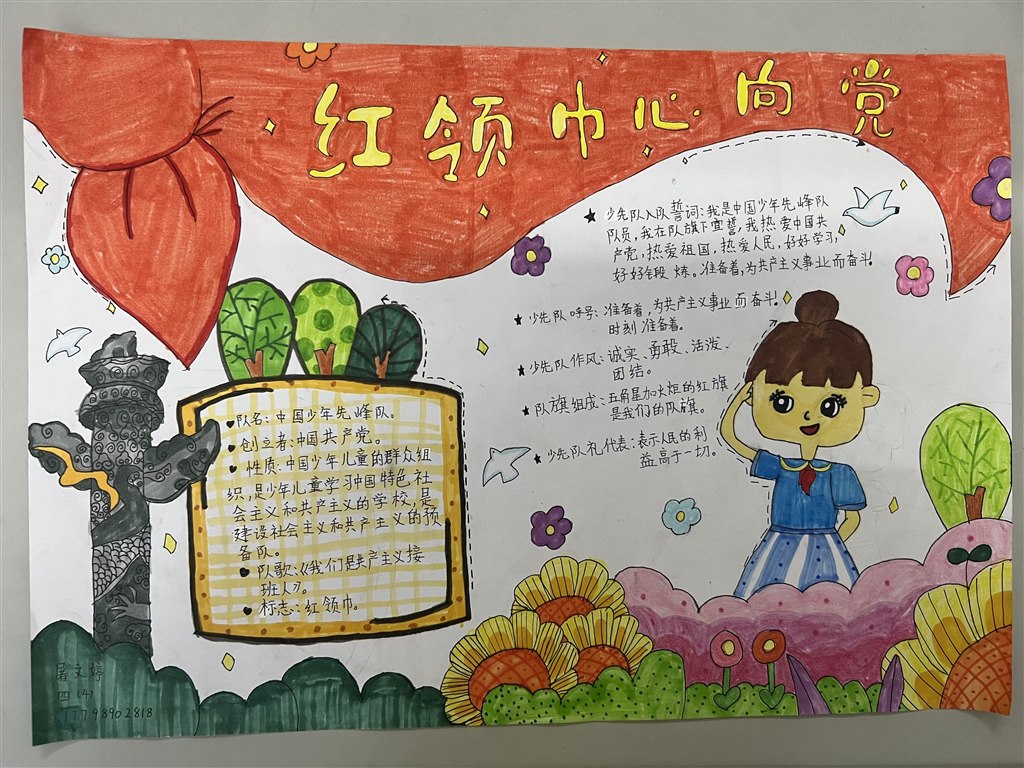 红领巾心向党
★少先队入队誓词:我是中国少年先峰队
队员,我在队旗下宣誓,我热爱中国共
产党,热爱祖国,热爱人民,好好学习,
好好锻炼。准备着,为共产主义事业而奋斗!
★少先队呼号:准备着,为共产主义事业而奋斗!
时刻准备着。
★少先队作风:诚实、勇敢、活泼、
团结。
★队旗组成:五角星加火炬的红旗
是我们的队旗。
★少先队礼代表:表示人民的利
益高于一切。
♥队名:中国少年先峰队。
♥创立者:中国共产党。
♥性质:中国少年儿童的群众组
织,是少年儿童学习中国特色社
会主义和共产主义的学校,是
建设社会主义和共产主义的预
备队。
♥队歌:《我们是共产主义接
班人》。
♥标志:红领巾。
屠文婷
四(4)
17798902818